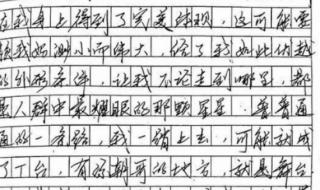 在我身上得到了完美体现,这可能要
颜我如渺小而伟大,给了我如此优越
的外形条件,让我不论走到哪里,都
是人群中最耀眼的那颗星星。普普通
通的一条路,我一踏上去,可能就成
了T台,有我朝可的地方,就是舞台